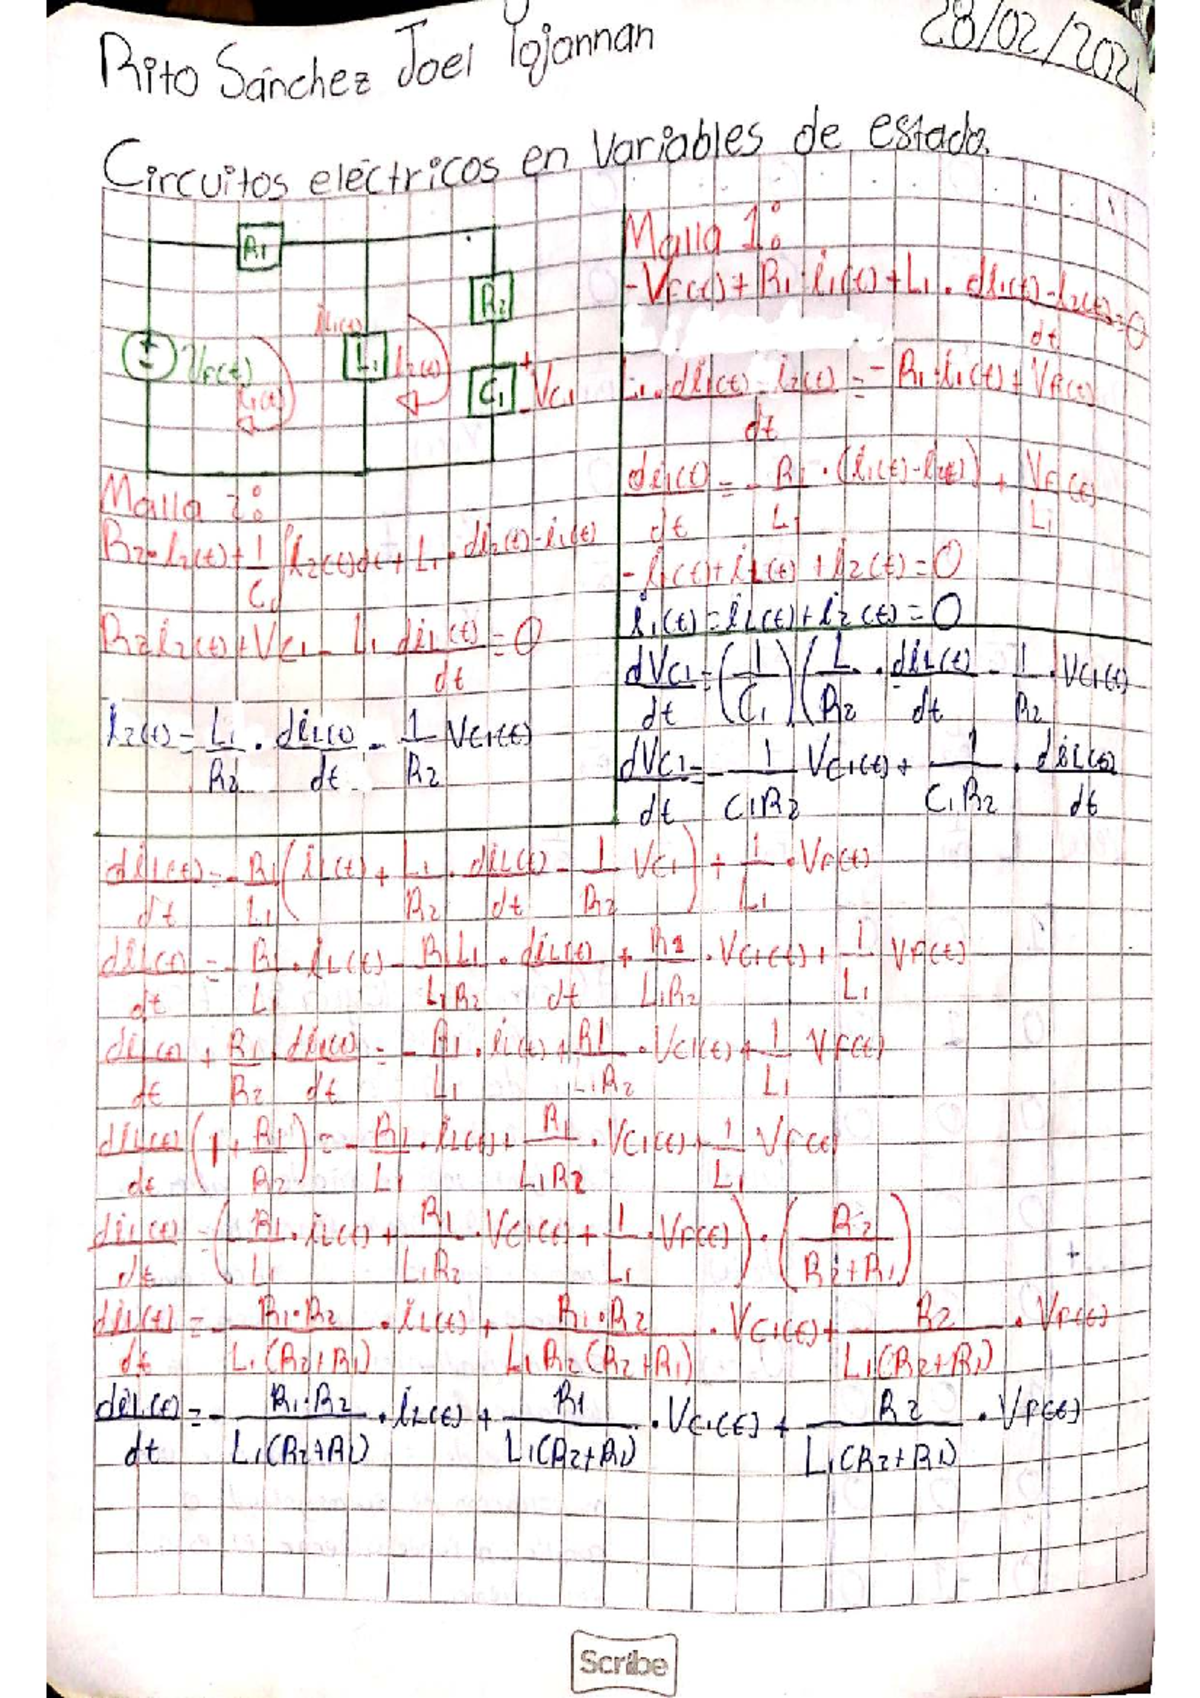 Rito Sánchez Joel Yojannan
28/02/2021
Circuitos eléctricos en Variables de estado.
R1
R2
L1
C1
+
-
VC1
VF(t)
i1(t)
iL(t)
i2(t)
Malla 1:
-VF(t) + R1·i1(t) + L1·di1(t)-i2(t)/dt = 0
L1·di1(t)-i2(t)/dt = -R1·i1(t) + VF(t)
diL(t)/dt = -R1/L1·(i1(t)-i2(t)) + VF(t)/L1
-i1(t) + iL(t) + i2(t) = 0
i1(t) = iL(t) + i2(t) = 0
Malla 2:
R2·i2(t) + 1/C1 ∫i2(t)dt + L1·di2(t)-i1(t)
R2i2(t) + VC1 - L1 diL(t)/dt = 0
i2(t) = L1/R2·diL(t)/dt - 1/R2 VC1(t)
dVC1/dt = (1/C1)(L/R2·diL(t)/dt - 1/R2·VC1(t)
dVC1/dt = -1/C1R2 VC1(t) + 1/C1R2·diL(t)/dt
diL(t)/dt = -R1/L1(iL(t) + L1/R2·diL(t)/dt - 1/R2 VC1) + 1/L1·VF(t)
diL(t)/dt = -R1/L1·iL(t) - R1L1/L1R2·diL(t)/dt + R1/L1R2·VC1(t) + 1/L1 VF(t)
diL(t)/dt + R1/R2·diL(t)/dt = -R1/L1·iL(t) + R1/L1R2·VC1(t) + 1/L1 VF(t)
diL(t)/dt(1 + R1/R2) = -R1/L1·iL(t) + R1/L1R2·VC1(t) + 1/L1 VF(t)
diL(t)/dt = (-R1/L1·iL(t) + R1/L1R2·VC1(t) + 1/L1·VF(t))·(R2/R2+R1)
diL(t)/dt = -R1·R2/L1(R2+R1)·iL(t) + R1·R2/L1R2(R2+R1)·VC1(t) + R2/L1(R2+R1)·VF(t)
diL(t)/dt = -R1·R2/L1(R2+R1)·iL(t) + R1/L1(R2+R1)·VC1(t) + R2/L1(R2+R1)·VF(t)
Scribe